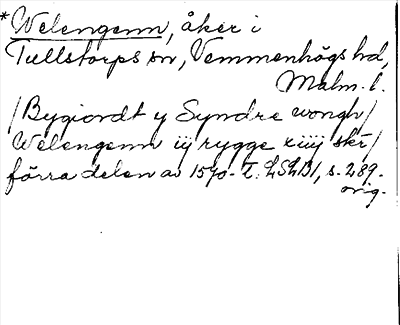 *Welengenn, åker i
Tullstorps sn, Vemmenhögs hd,
Malm. l.
/Bygiordt y Syndre wongh/
Welengenn iij rygge xiiij skr/
förra delen av 1570-t. LSLB1, s. 289.
orig.